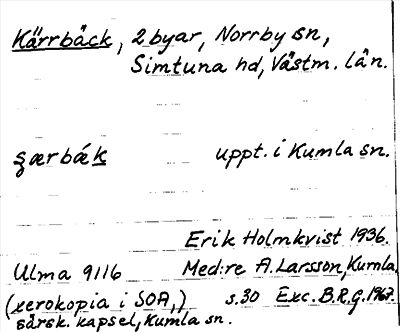 Kärrbäck, 2 byar, Norrby sn,
Simtuna hd, Västm. län.
şærbǽk uppt. i Kumla sn.
Erik Holmkvist 1936.
Ulma 9116 Med:re A. Larsson, Kumla.
(xerokopia i SOA,) s.30 Exc. B.R.G. 1967.
särsk. kapsel, Kumla sn.